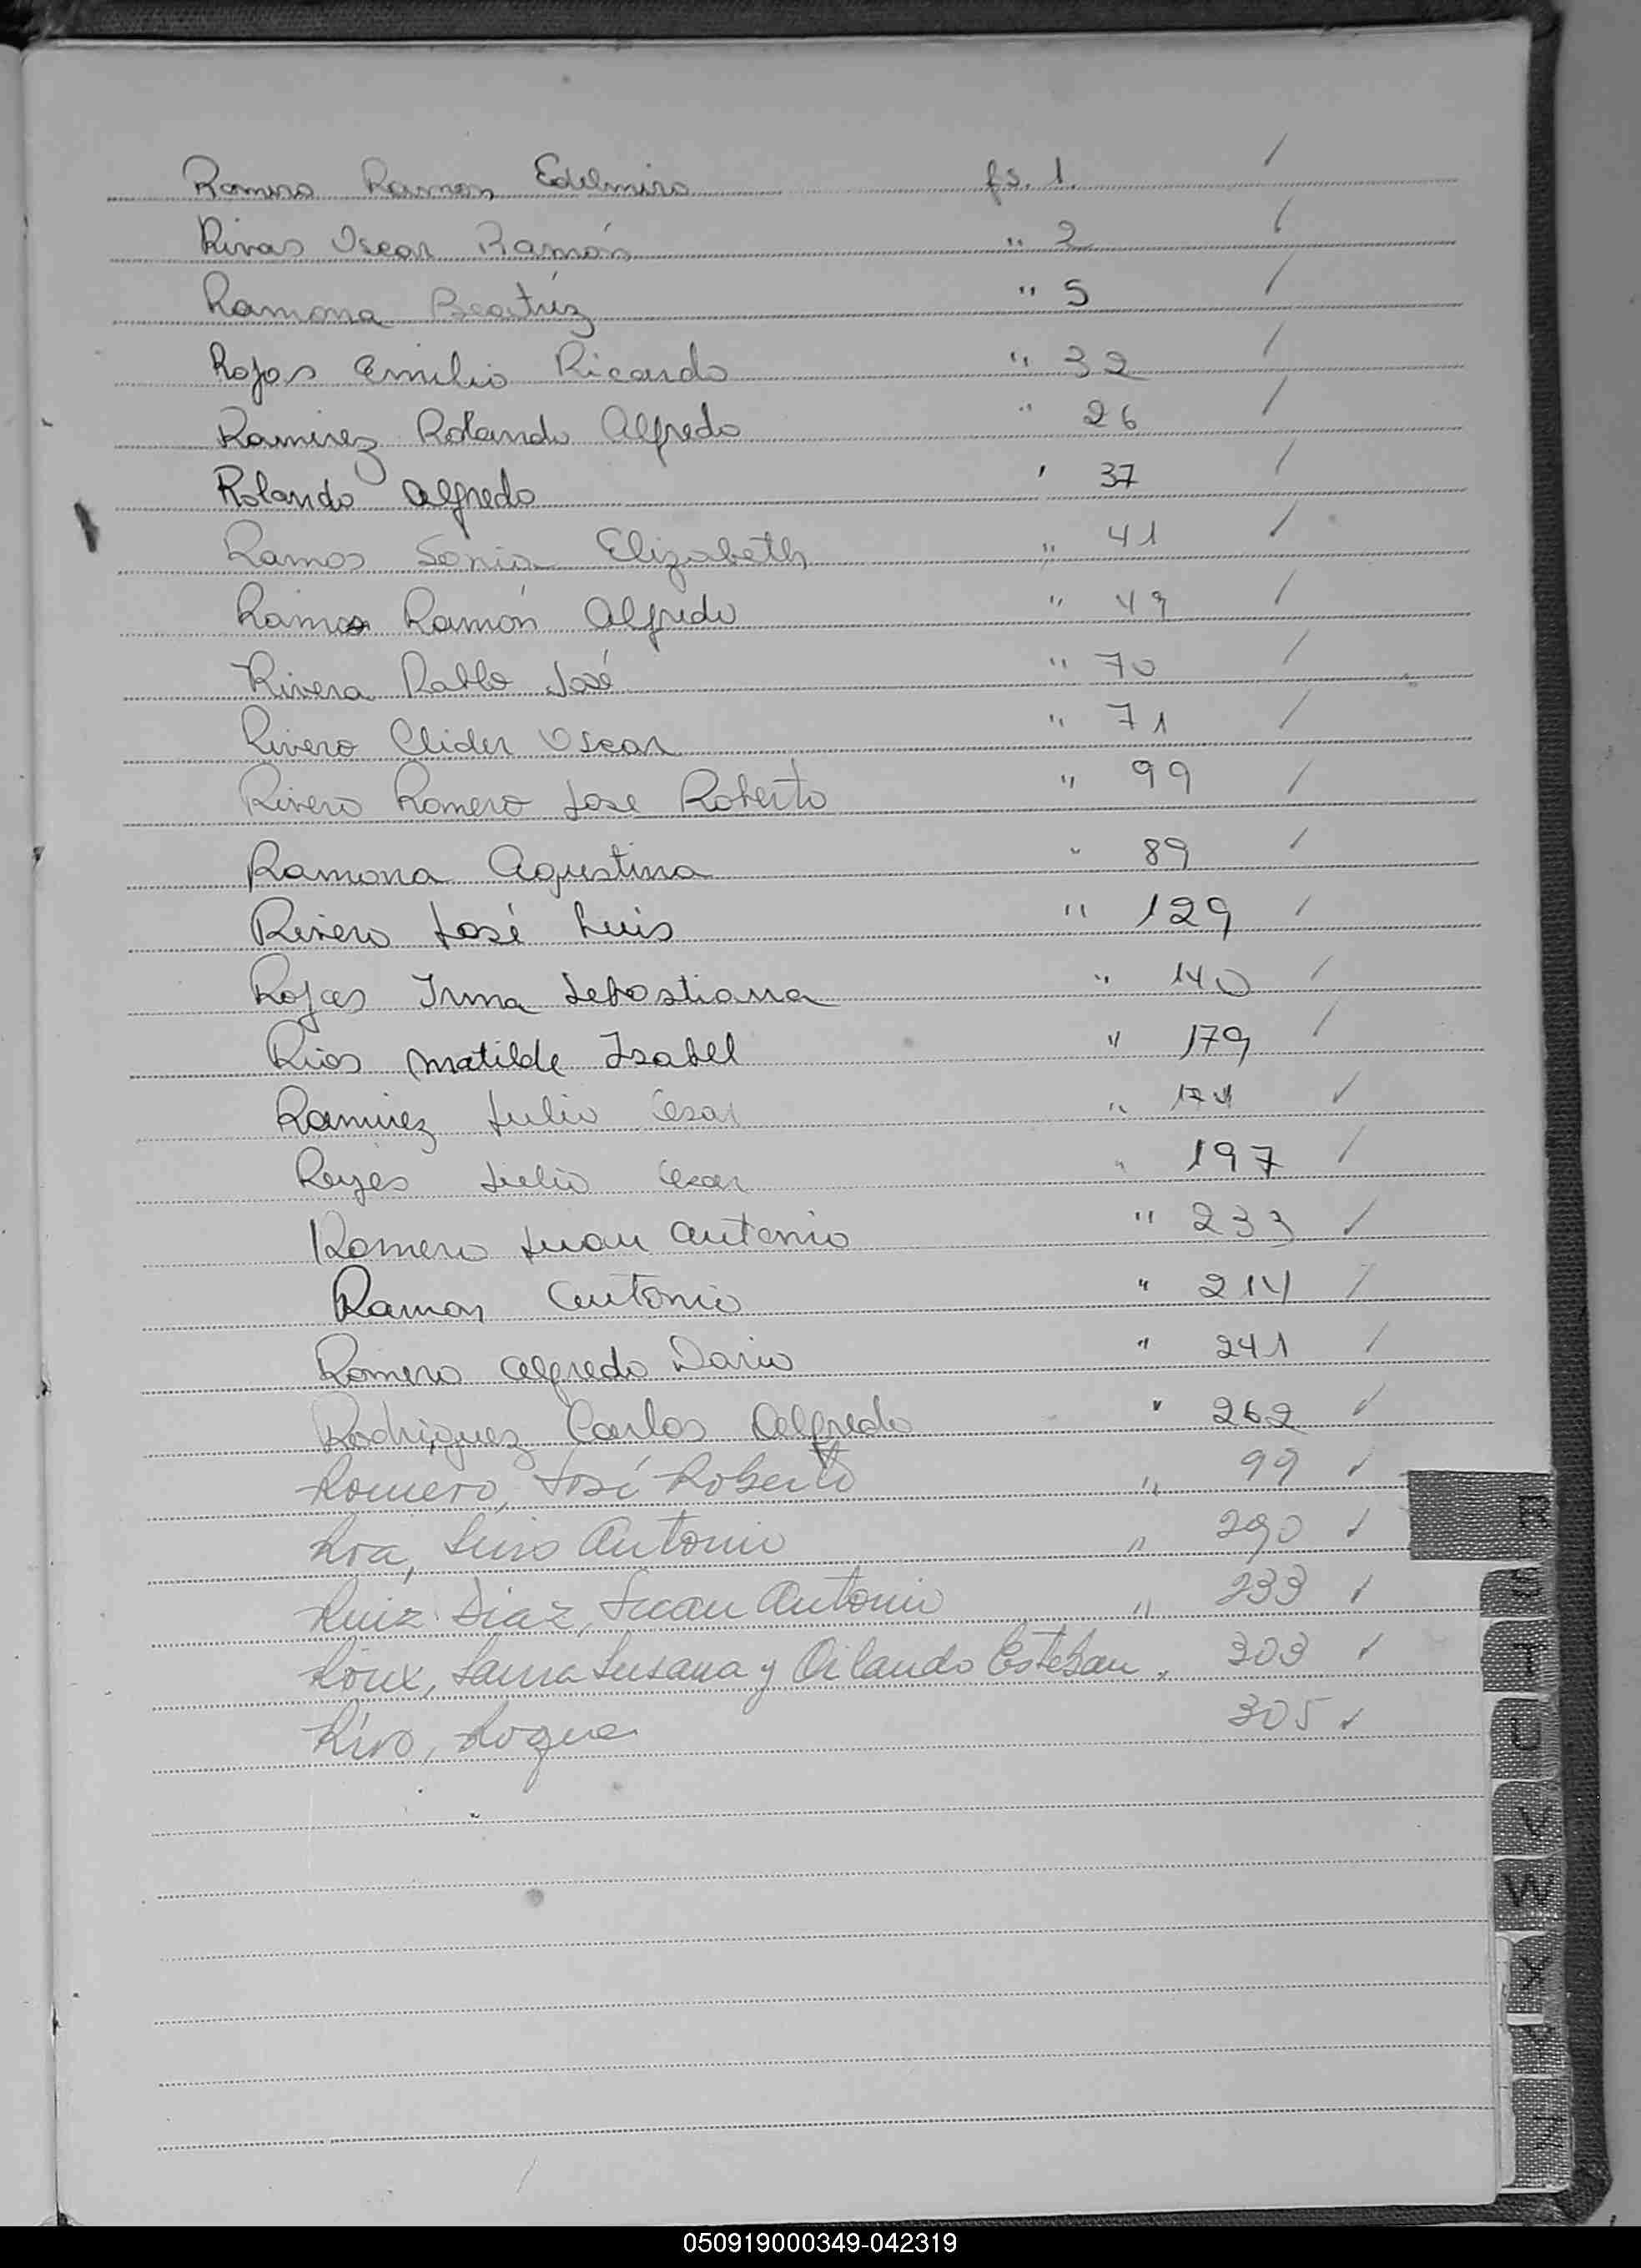 Romero Ramon Edelmiro fs. 1. /
Rivas Oscar Ramón " 2 /
Ramona Beatriz " 5 /
Rojas Emilio Ricardo " 32 /
Ramirez Rolando Alfredo " 26 /
Rolando Alfredo ' 37 /
Ramos Sonia Elizabeth " 41 /
Ramos Ramón Alfredo " 49 /
Rivera Pablo José " 70 /
Rivero Clider Oscar " 71 /
Rivero Romero Jose Roberto " 99 /
Ramona Agustina " 89 /
Rivero José Luis " 129 /
Rojas Irma Sebastiana " 140 /
Rios Matilde Isabel " 179 /
Ramirez Julio Cesar " ✓
Reyes Julio Cesar " 197 /
Romero Juan Antonio " 233 ✓
Ramon Antonio " 214 /
Romero Alfredo Dario " 241 /
Rodriguez Carlos Alfredo " 262 ✓
Romero, José Roberto " 99 ✓
Roa, Luis Antonio " 290 ✓
Ruiz Diaz, Juan Antonio " 233 ✓
Roux, Laura Susana y Orlando Esteban " 303 ✓
Roque 305 ✓
R
S
T
U
V
W
X
Y
Z
050919000349-042319